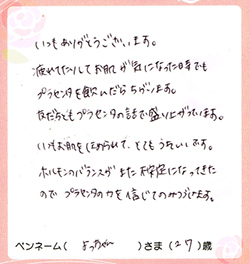 いつもありがとうございます。
疲れてたりしてお肌が気になった時でも
プラセンタを飲んだらちがいます。
友だちともプラセンタの話で盛り上がっています。
いつもお肌をほめられて、とてもうれしいです。
ホルモンのバランスがまた安定になってきた
ので プラセンタの力を信じてのみつづけます。
ペンネーム( よっちゃん )さま(27)歳